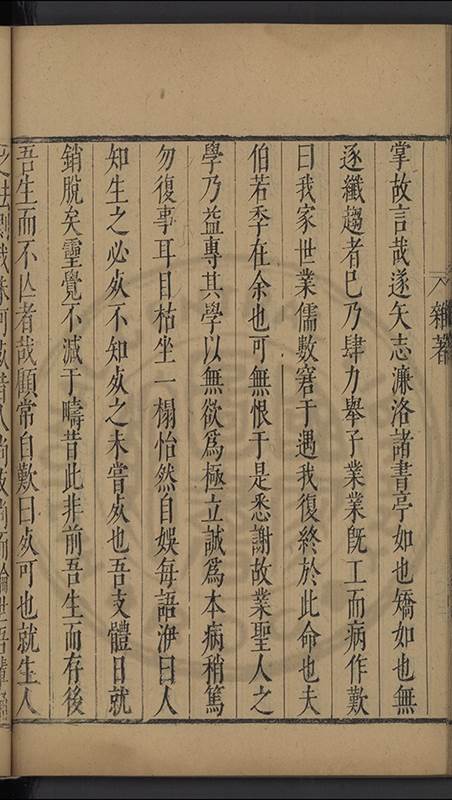 八雜著
掌故言哉遂矢志濂洛諸書亭如也矯如也無
逐纖趨者巳乃肆力舉子業業旣工而病作歎
曰我家世業儒數窘于遇我復終於此命也夫
伯若季在余也可無恨于是悉謝故業聖人之
學乃益專其學以無欲爲極立誠爲本病稍篤
勿復事耳目枯坐一榻怡然自娛每語洢曰人
知生之必䰟不知䰟之未嘗䰟也吾支體日就
銷脫矣靈覺不減于疇昔此非前吾生而存後
吾生而不亾者哉顧常自歎曰䰟可也就生人